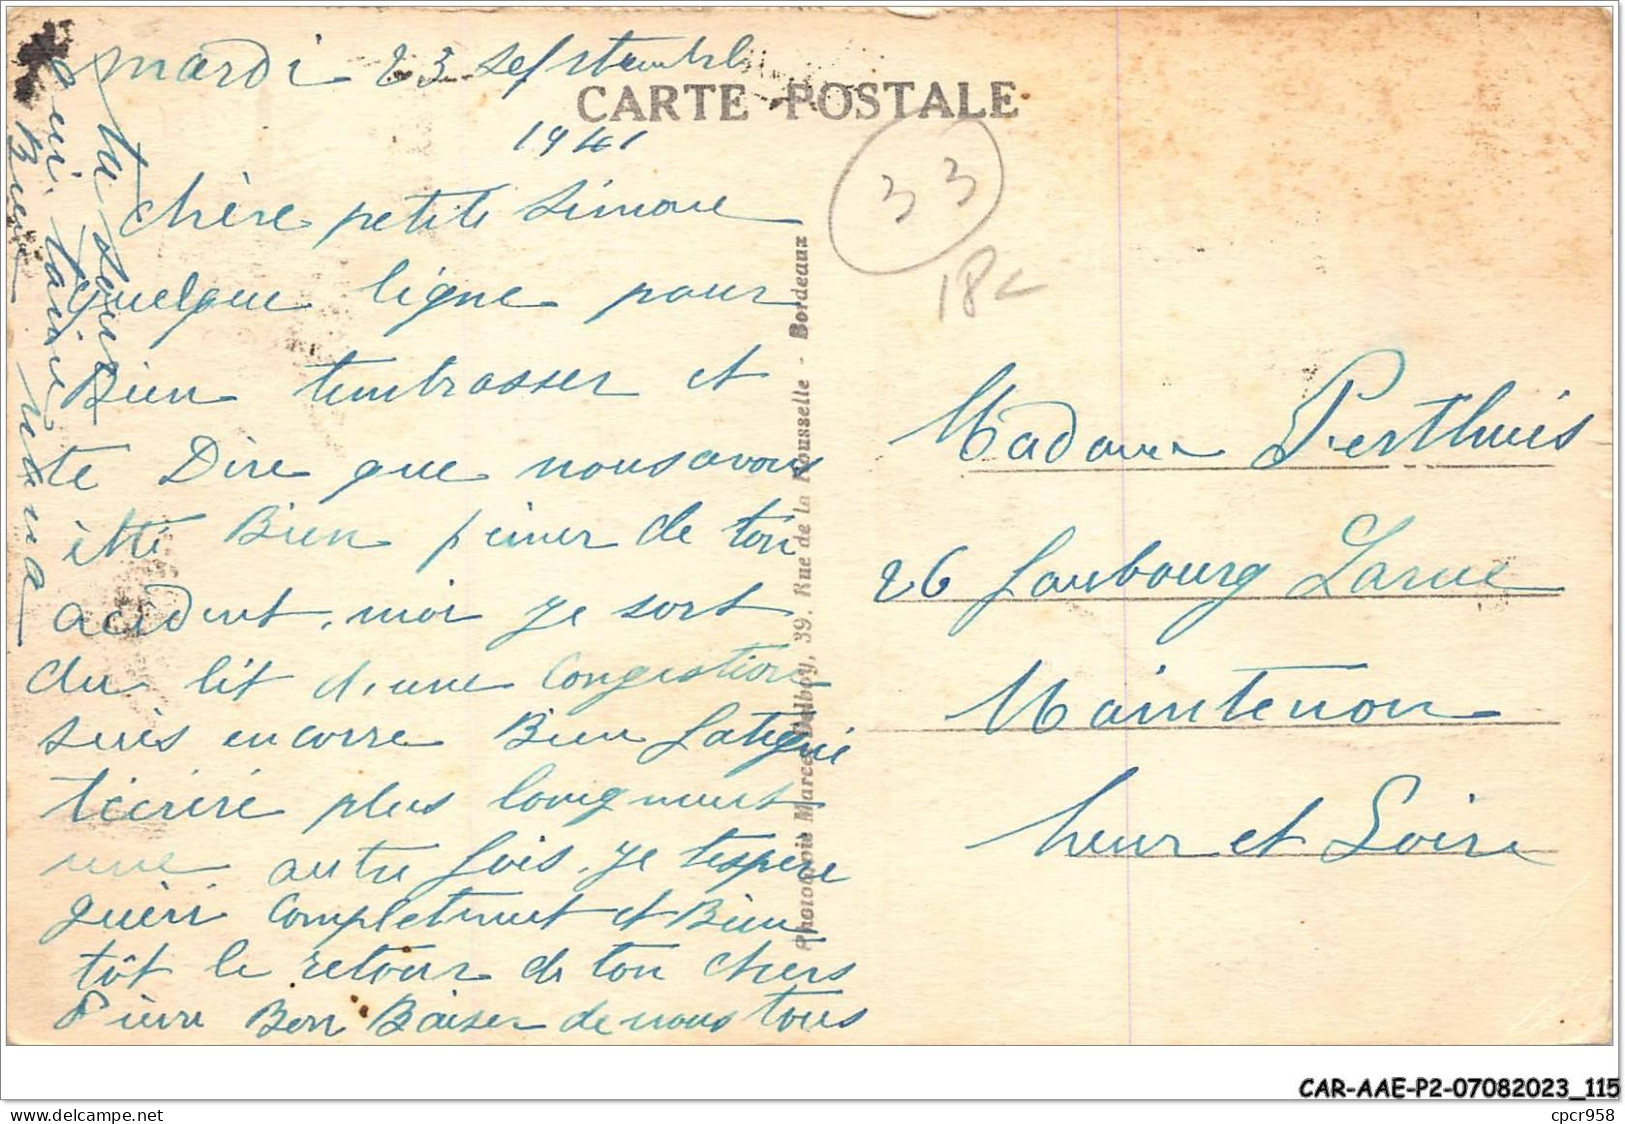 mardi 23 septembre
1941
CARTE POSTALE
33
18c
chère petite Simone
quelque ligne pour
Bien tembrasser et
te Dire que nous avons
étté Bien peiner de ton
acident, moi je sort
du lit d'une Congestion
suis encorre Bien fatigué
técrire plus longment
une autre fois. je tespere
guéri Completment et Bien
tôt le retour de ton chers
Pierre Bon Baiser de nous tous
ta soeur
qui t'aime
Bien
Photographie Marcel Delboy, 39, Rue de la Rousselle - Bordeaux
Madame Perthuis
26 faubourg Larue
Maintenon
heur et Loire
CAR-AAE-P2-07082023_115
www.delcampe.net
cpcr958